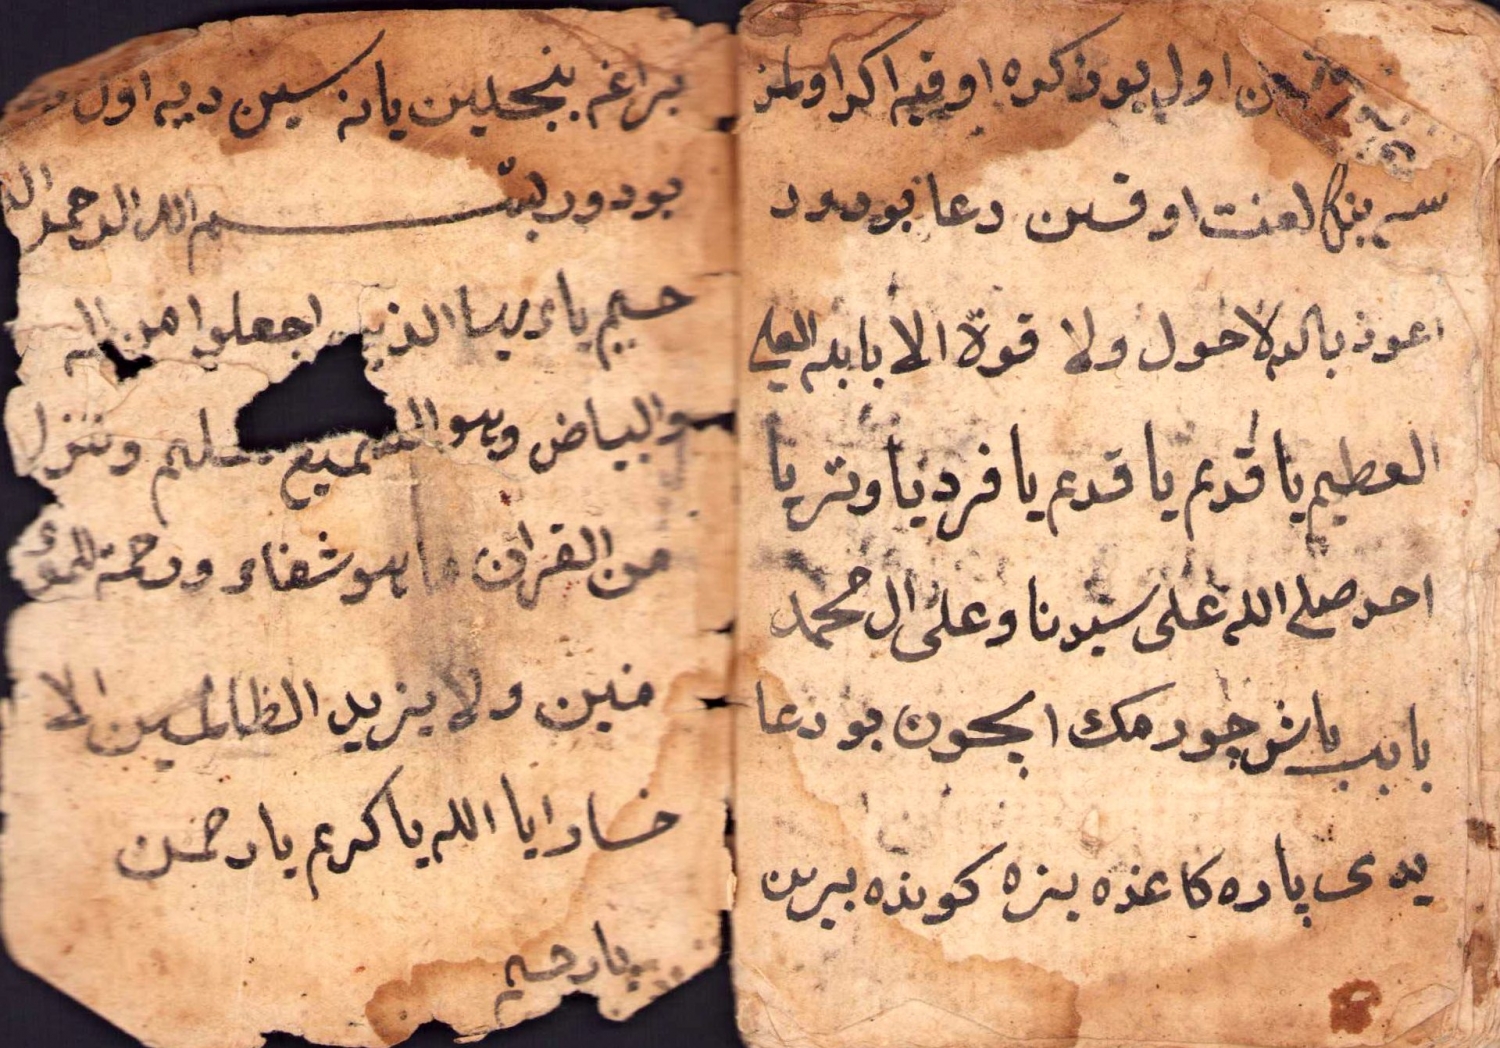 اول يوز كره اوقيه اكر اولمز
سه بنكا لعنت اوقسن دعا بودور
اعوذ بالله لا حول ولا قوة الا بالله العلي
العظيم يا قديم يا قديم يا فرد يا وتر يا
احد صلى الله على سيدنا وعلى ال محمد
باب باش چورمك ايچون بو دعا
يدى پاره كاغذه يزه كونده بيرين
براغه بنجلين يانه سين ديه اول
بودور بسم الله الرحمن الر
حيم يا ايها الذين اجعلوا من
والبياض وهو السميع عليم وننزل
من القران ما هو شفاء ورحمة للمؤ
منين ولا يزيد الظالمين الا
خسارا يا الله يا كريم يا رحمن
يا رحيم